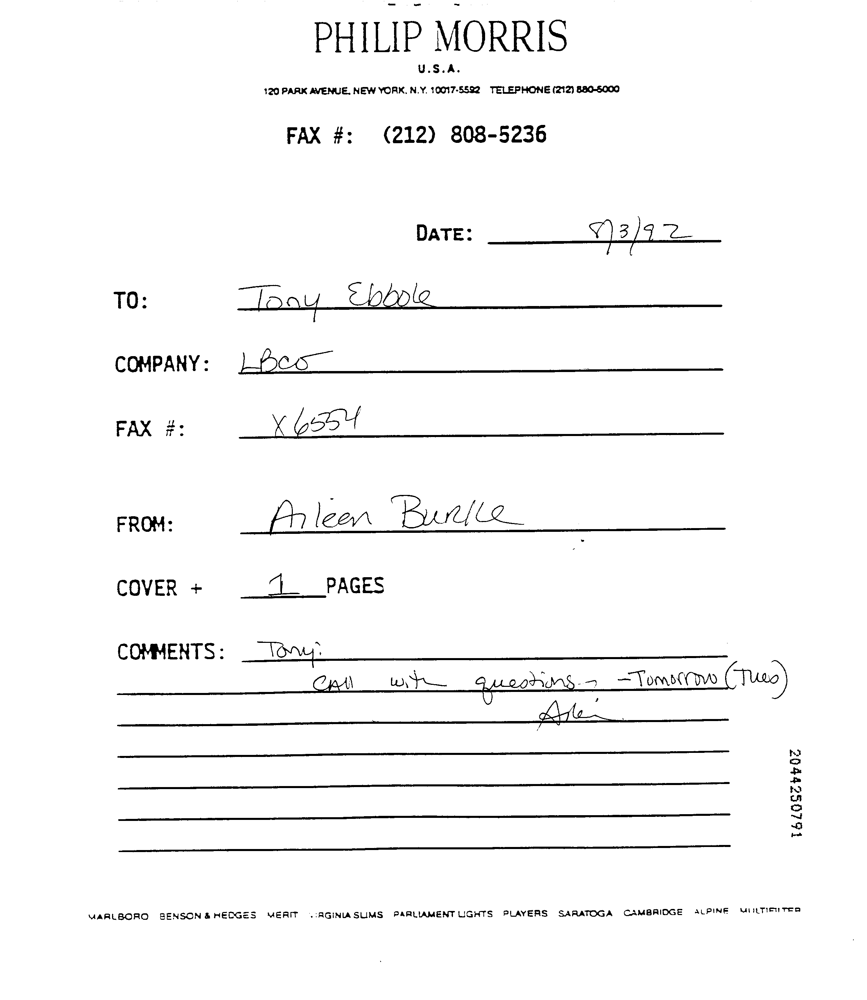 PHILIP MORRIS
U.S.A.
120 PARK AVENUE, NEW YORK, N.Y. 10017-5592 TELEPHONE (212) 880-5000
FAX #: (212) 808-5236
DATE: 8/3/92
TO: Tony Ebbole
COMPANY: LBCO
FAX #: X6554
FROM: Aileen Burke
COVER + 1 PAGES
COMMENTS: Tony:
CAll with questions - Tomorrow (Tues)
2044250791
MARLBORO BENSON & HEDGES MERIT VIRGINIA SLIMS PARLIAMENT LIGHTS PLAYERS SARATOGA CAMBRIDGE ALPINE MULTIFILTER